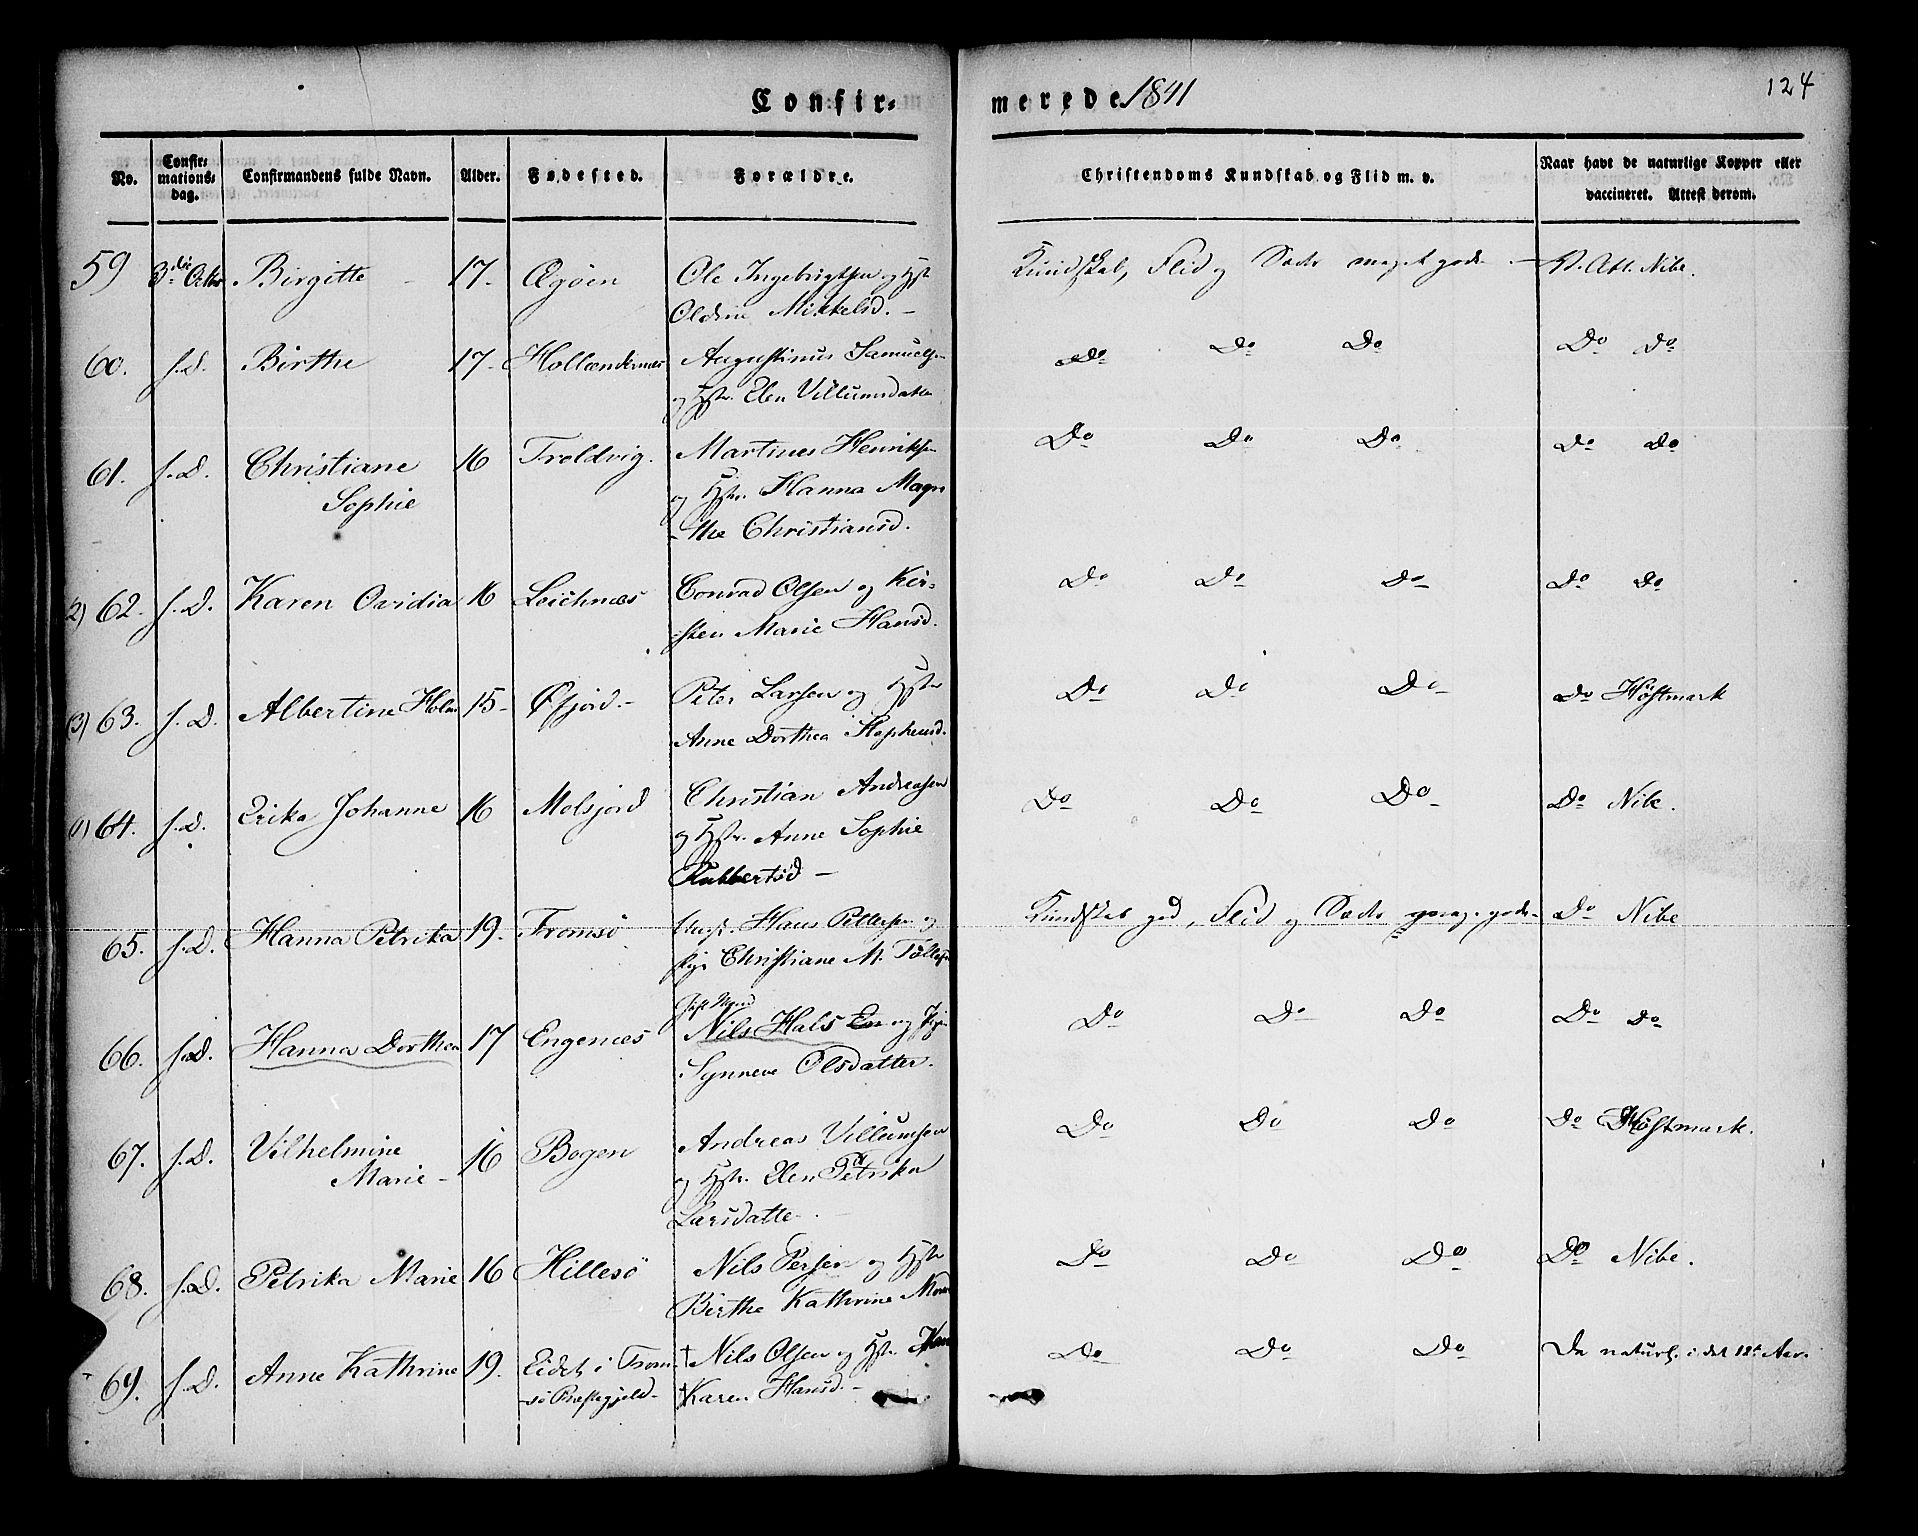 Confir=
merede 1841
124
No.
Confir=
mations=
dag.
Confirmandens fulde Navn.
Alder.
Fødested.
Forældre.
Christendoms Kundskab og Flid m. v.
Naar havt de naturlige Kopper eller
vaccineret. Attest derom.
59 3die Octbr Birgitte 17. Ægøen Ole Ingebrigtsen og Hstr Kundskab, Flid og Sæder meget gode - V. Att. Nibe.
Oldine Mikkelsd. -
60. s.d. Birthe 17- Hollændernæs Augustinus Samuels. Do Do Do Do Do
og Hstr. Elen Villumsdatter
61. s.D. Christiane 16 Troldvig. Martinus Henriksen Do Do Do Do Do
Sophie og Hstr. Hanna Magre
-the Christiansd.
2) 62. s.D. Karen Ovidia 16 Leichnæs Conrad Olsen og Kir= Do Do Do Do Do
-sten Marie Hansd.
3) 63. s.D. Albertine Holm 15- Øfjord - Peter Larsen og Hstr Do Do Do Do Høstmark
Anne Dorthea Stephensd.
1) 64. s.D. Erika Johanne 16 Molsjord Christian Andreasen Do Do Do Do Nibe.
og Hstr. Anne Sophie
65. s.D. Hanna Petrika 19. Tromsø Hans Pettersen og Kundskab god, Flid og Sæder gode - Do Nibe
Christiane M. Tolles
gift Mand
66. s.D. Hanna Dorthea 17 Engenæs Nils Hals En og Pige Do Do Do Do Do
Synneve Olsdatter.
67. s.D. Vilhelmine 16 Bogen Andreas Villumsen Do Do Do Do Høstmark.
Marie - og Hstr. Elen Petrika
Larsdatte -
68. s.D. Petrika Marie 16 Hillesö Nils Persen og Hstr Do Do Do Do Nibe.
Birthe Kathrine
69. s.D. Anne Kathrine 19. Eidet i Trom † Nils Olsen og Hstr. Do Do Do Do naturl. i det 12te Aar.
-sö Præstegjeld - † Karen Hansd. -